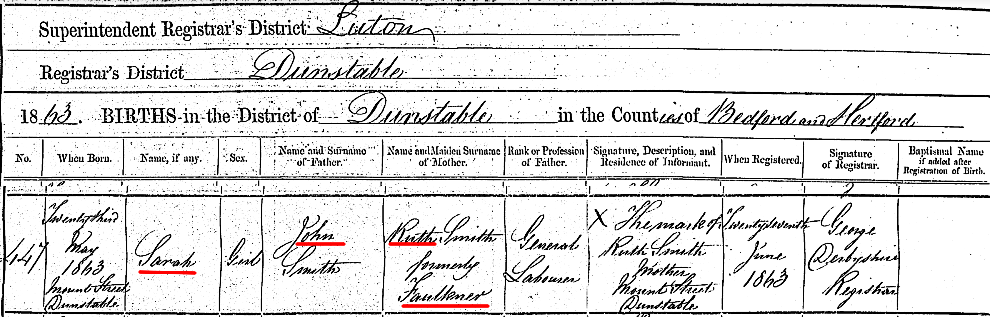 Superintendent Registrar's District Luton
Registrar's District Dunstable
1863. BIRTHS in the District of Dunstable in the Counties of Bedford and Hertford
No. When Born. Name, if any. Sex. Name and Surname of Father. Name and Maiden Surname of Mother. Rank or Profession of Father. Signature, Description, and Residence of Informant. When Registered. Signature of Registrar. Baptismal Name if added after Registration of Birth.
447
Twenty third
May
1863
Mount Street
Dunstable
Sarah
Girl
John
Smith
Ruth Smith
formerly
Faulkner
General
Labourer
X The mark of
Ruth Smith
Mother
Mount Street
Dunstable
Twenty seventh
June
1863
George
Derbyshire
Registrar